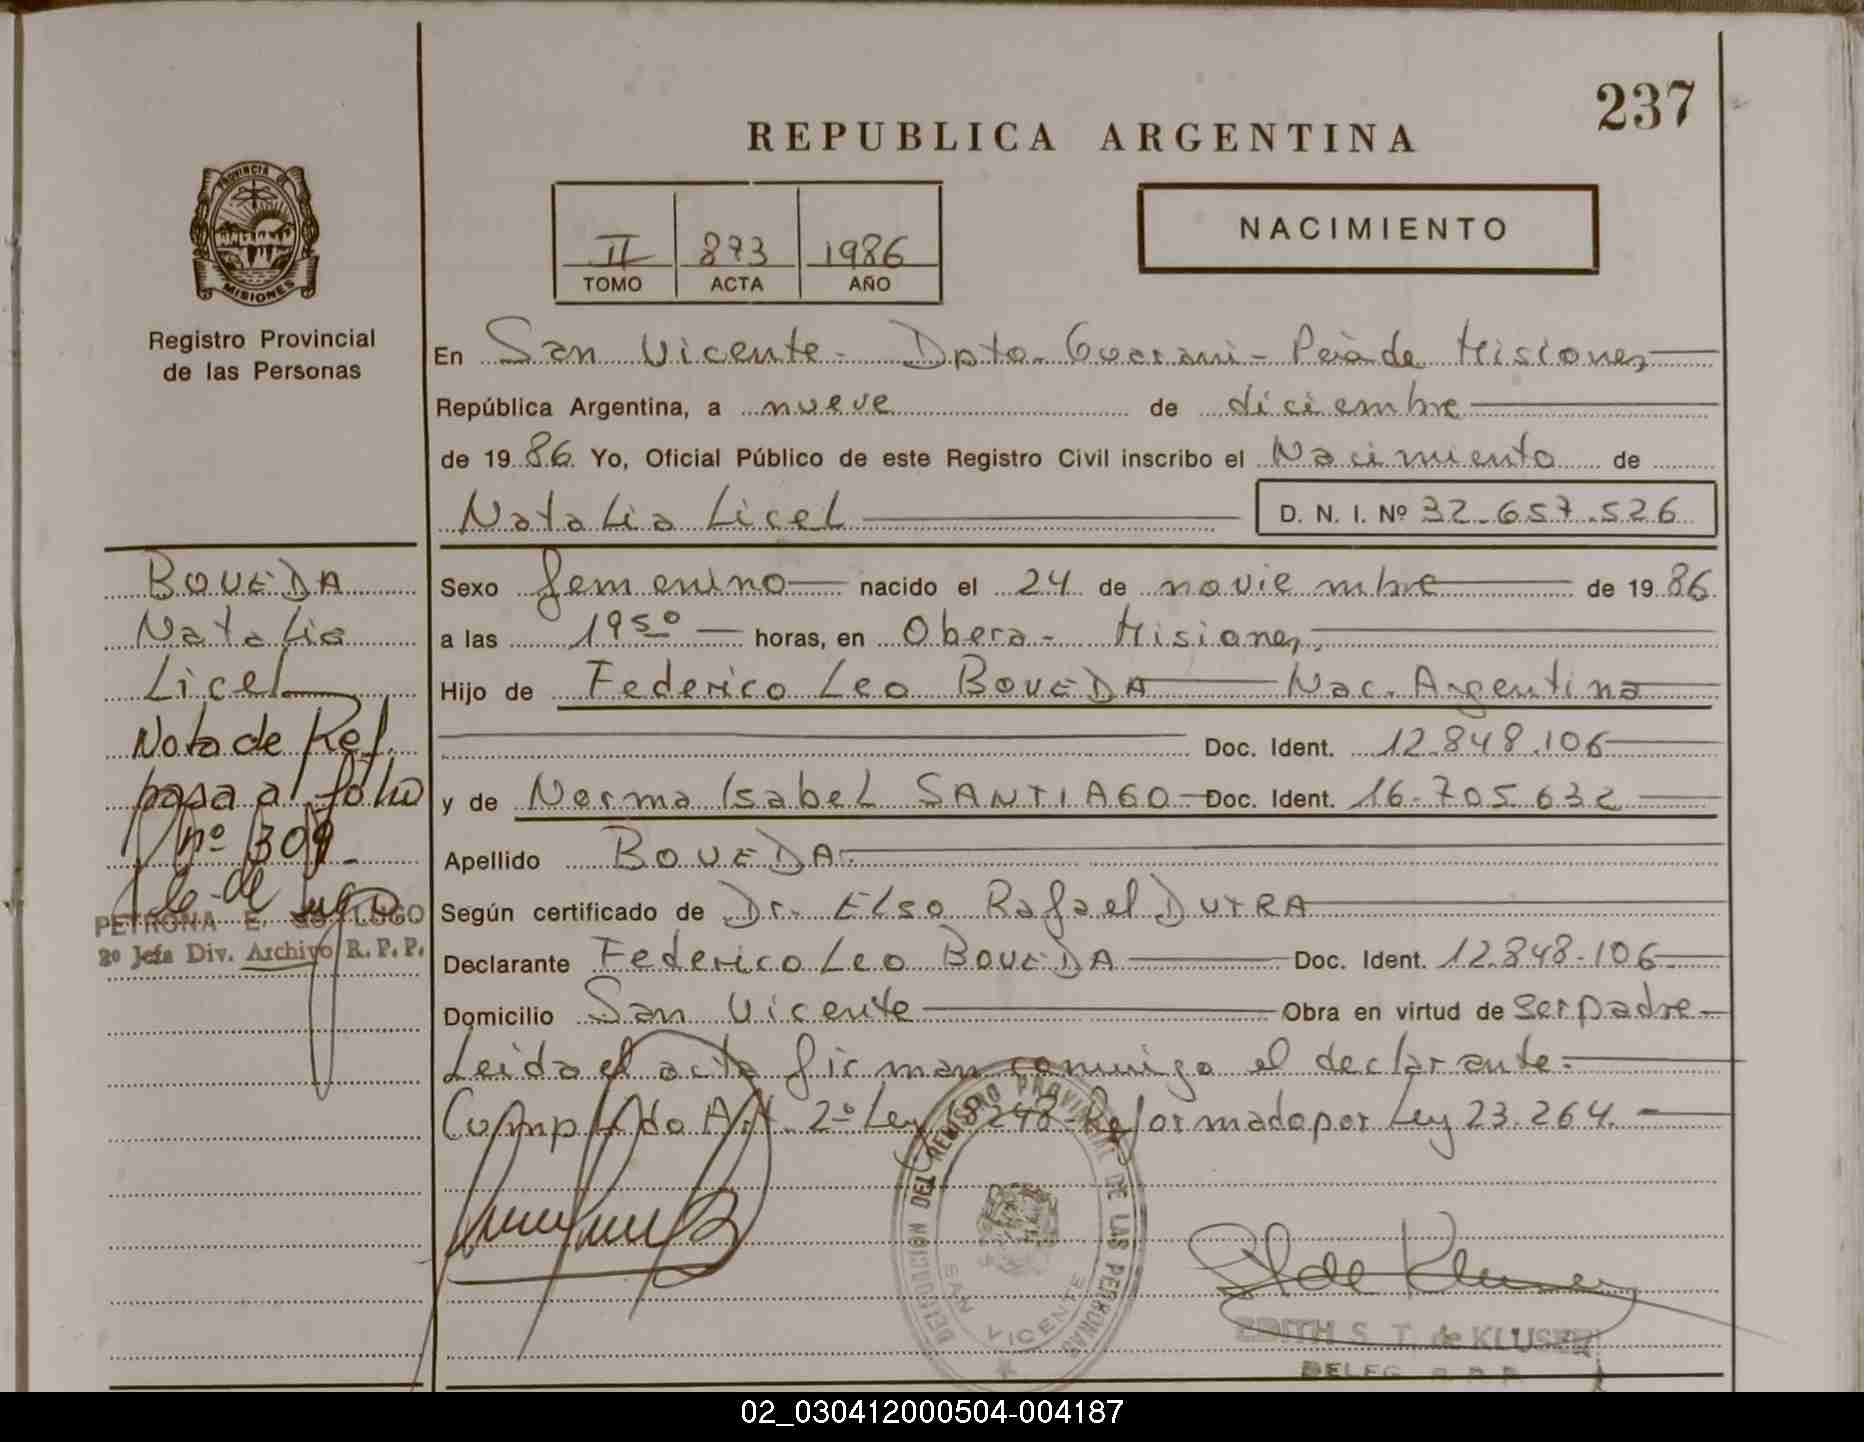 237
REPUBLICA ARGENTINA
NACIMIENTO
PROVINCIA DE
MISIONES
Registro Provincial
de las Personas
II 873 1986
TOMO ACTA AÑO
En San Vicente - Dpto. Guarani - Pcia de Misiones
República Argentina, a nueve de diciembre
de 1986 Yo, Oficial Público de este Registro Civil inscribo el Nacimiento de
Natalia Licel D. N. I. Nº 32.657.526
BOVEDA
Natalia
Licel
Nota de Ref.
pasa al folio
nº 309.-
PETRONA E. LUGO
2º Jefa Div. Archivo R. P. P.
Sexo femenino nacido el 24 de noviembre de 1986
a las 19 50 horas, en Obera - Misiones,
Hijo de Federico Leo BOVEDA Nac. Argentina
Doc. Ident. 12.848.106
y de Norma Isabel SANTIAGO Doc. Ident. 16.705.632
Apellido BOVEDA.
Según certificado de Dr. Elso Rafael DUTRA
Declarante Federico Leo BOVEDA Doc. Ident. 12.848.106
Domicilio San Vicente Obra en virtud de ser padre
Leida el acta firman conmigo el declarante.
Cumplido Art. 2º Ley 18.248 - Reformado por Ley 23.264.
DELEGACION DEL REGISTRO PROVINCIAL DE LAS PERSONAS
SAN VICENTE
E de Kluser
EDITH S. T. de KLUSER
DELEG. R. P. P.
02_030412000504-004187